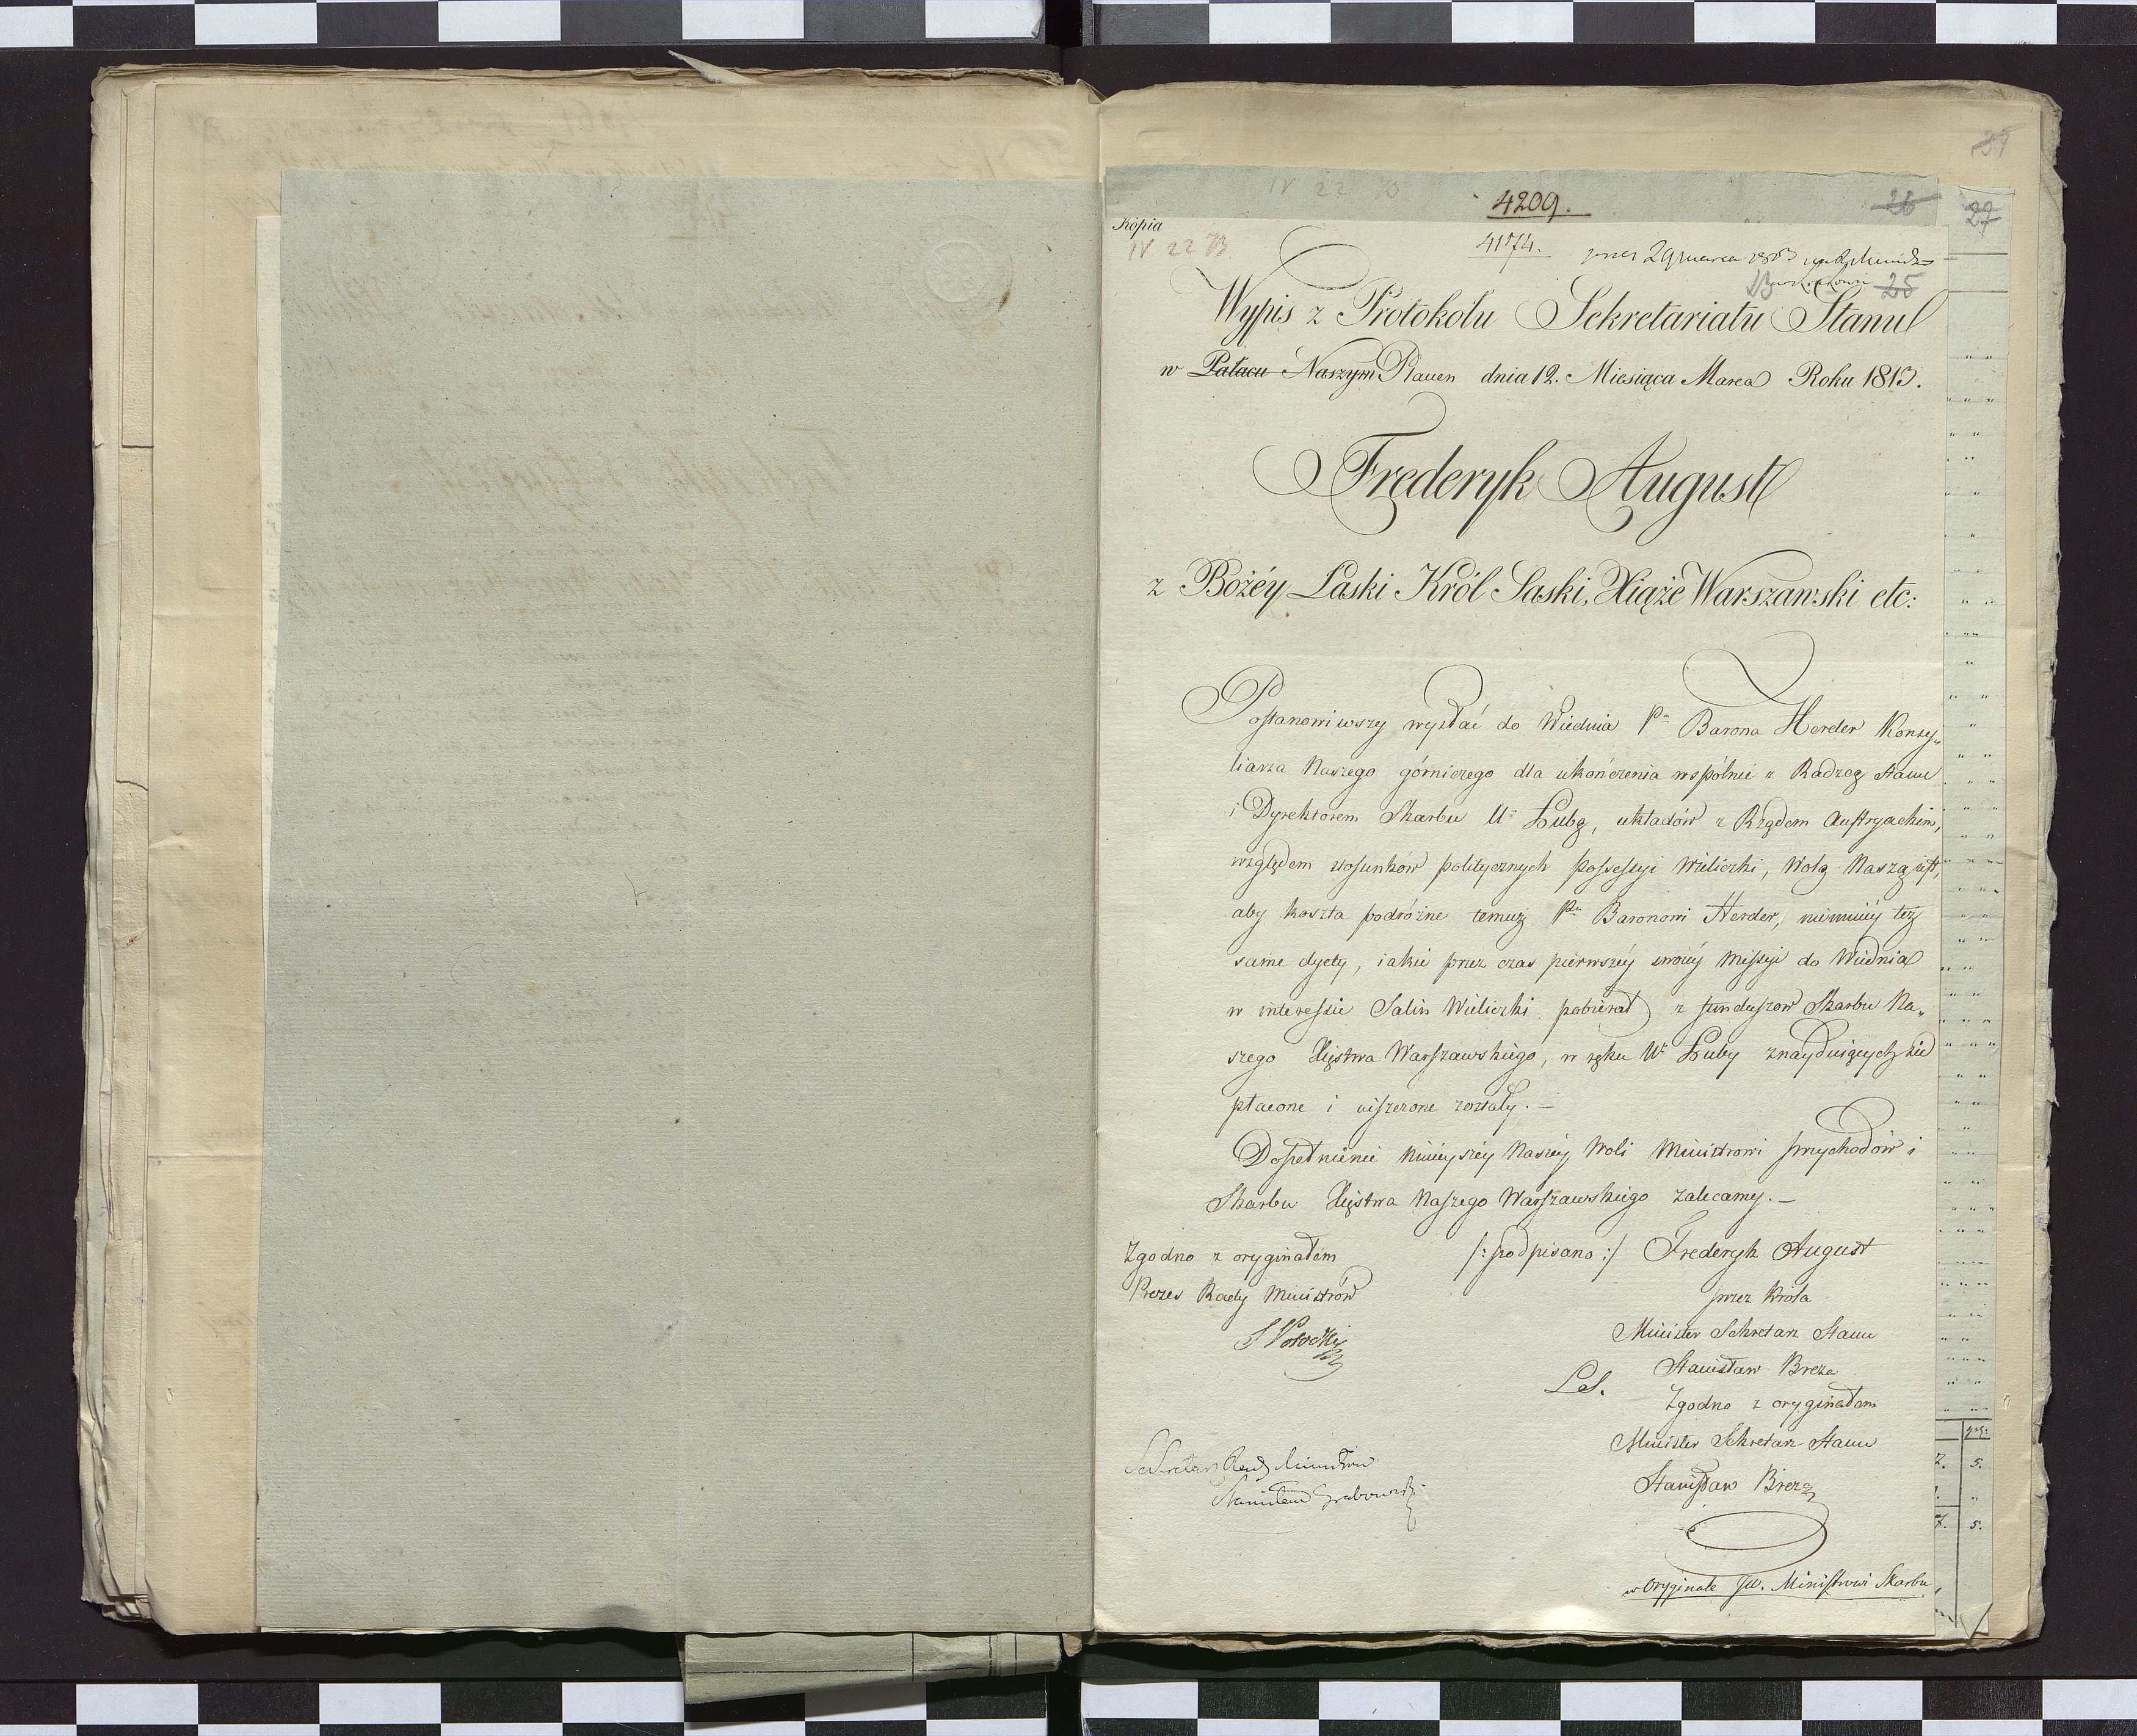 31
IV 22 B
4209.
26
27
Kopia
IV 22 B
4174.
pres 29 marca 1813
25
Wypis z Protokółu Sekretariatu Stanu
w Pałacu Naszym Plauen dnia 12. Miesiąca Marca Roku 1813.
Frederyk August
z Bożéy Łaski Król Saski, Xiąże Warszawski etc:
Postanowiwszy wysłać do Wiednia Pa Barona Herder Konsy„
liarza Naszego górniczego dla ukończenia wspólnie z Radzcą Stanu
i Dyrektorem Skarbu Ur Łubą, układów z Rządem Austryackim,
względem stosunków politycznych possessyi Wieliczki, Wolą Naszą iest,
aby koszta podróżne temuż Pu Baronowi Herder, niemniéy też
same dyety, iakie przez czas pierwszéy swoiéy Missyi do Wiednia
w interessie Salin Wieliczki pobierał z funduszów Skarbu Na„
szego Xięstwa Warszawskiego, w ręku Ur Łuby znayduiących się
płacone i uiszczone zostały. —
Dopełnienie ninieyszéy Naszéy Woli Ministrowi przychodów i
Skarbu Xięstwa Naszego Warszawskiego zalecamy. —
Zgodno z oryginałem
/: podpisano :/ Frederyk August
Prezes Rady Ministrów
przez Króla
S Potocki
Minister Sekretarz Stanu
Stanisław Breza
L.S.
Zgodno z oryginałem
Minister Sekretarz Stanu
Sekretarz Rady Ministrów
Stanisław Grabowski
Stanisław Breza
w Oryginale JW. Ministrowi Skarbu